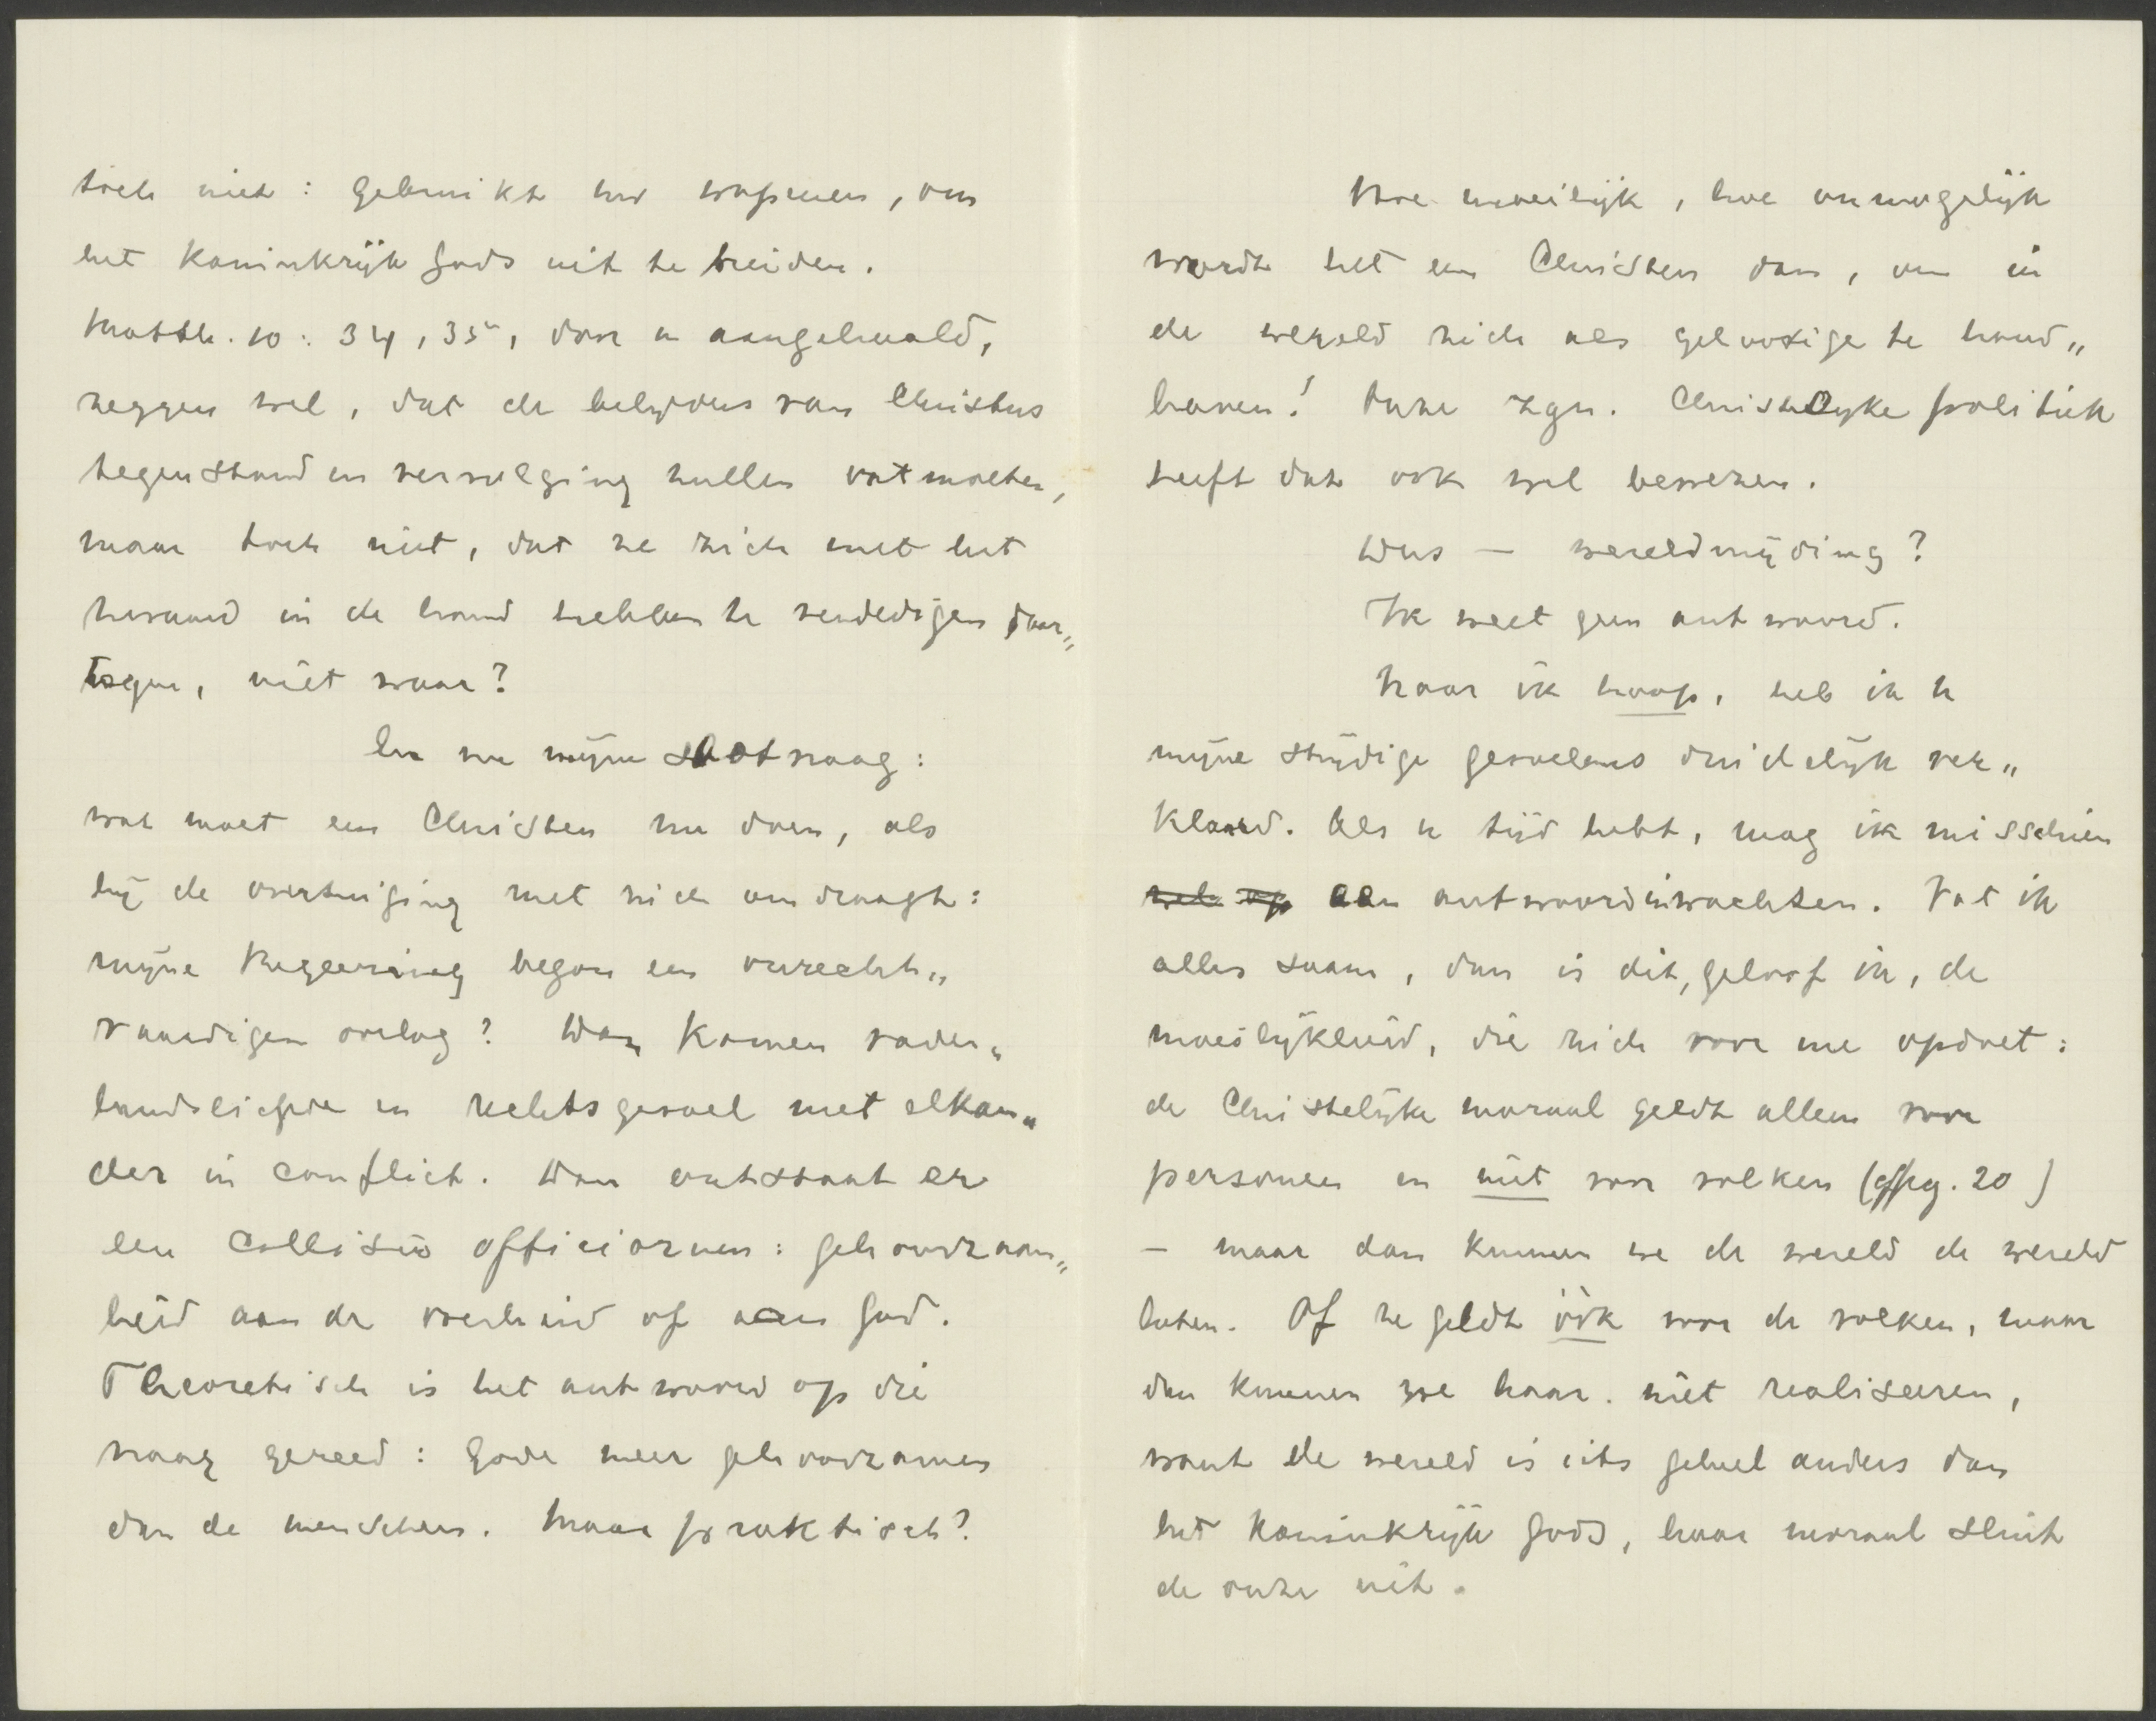 toch niet: gebruikt uw wapenen, om
het Koninkrijk Gods uit te breiden.
Matth. 10: 34, 35, door u aangehaald,
zeggen wel, dat de belijders van Christus
tegenstand en vervolging zullen ontmoeten,
maar toch niet, dat ze zich met het
zwaard in de hand hebben te verdedigen daar„
tegen, niet waar?
En nu mijne slotvraag:
wat moet een Christen nu doen, als
hij de overtuiging met zich omdraagt:
mijne Regeering begon een onrecht„
vaardigen oorlog? Dan komen vader„
landsliefde en rechtsgevoel met elkan„
der in conflict. Dan ontstaat er
een collisio officiorum: gehoorzaam„
heid aan de overheid of aan God.
Theoretisch is het antwoord op die
vraag gereed: Gode meer gehoorzamen
dan de menschen. Maar praktisch?
Hoe moeilijk, hoe onmogelijk
wordt het een Christen dan, om in
de wereld zich als geloovige te hand„
haven! Onze zgn. Christelijke politiek
heeft dat ook wel bewezen.
Dus — wereldmijding?
Ik weet geen antwoord.
Maar ik hoop, heb ik U
mijne strijdige gevoelens duidelijk ver„
klaard. Als U tijd hebt, mag ik misschien
een antwoord inwachten. Vat ik
alles saam, dan is dit, geloof ik, de
moeilijkheid, die zich voor me opdoet:
de Christelijke moraal geldt alleen voor
personen en niet voor volken (pg. 20)
— maar dan kunnen we de wereld de wereld
laten. Of ze geldt óók voor de volken, maar
dan kunnen we haar niet realiseeren,
want de wereld is iets geheel anders dan
het Koninkrijk Gods, haar moraal sluit
de onze uit.